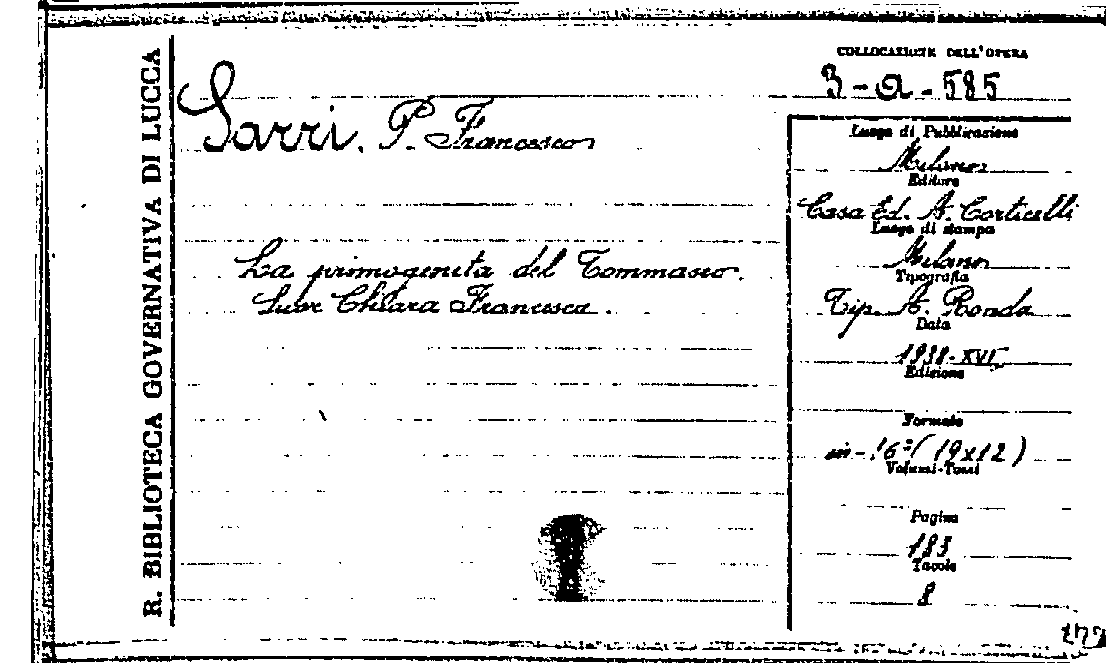 R. BIBLIOTECA GOVERNATIVA DI LUCCA
COLLOCAZIONE DELL'OPERA
3-a-585
Sarri, P. Francesco
La primogenita del Tommaseo.
Suor Chiara Francesca.
Luogo di Pubblicazione
Milano
Editore
Casa Ed. A. Corticelli
Luogo di stampa
Milano
Tipografia
Tip. A. Ronda
Data
1938-XVI
Edizione
Formato
in-16°(19x12)
Volumi-Tomi
Pagine
183
Tavole
8